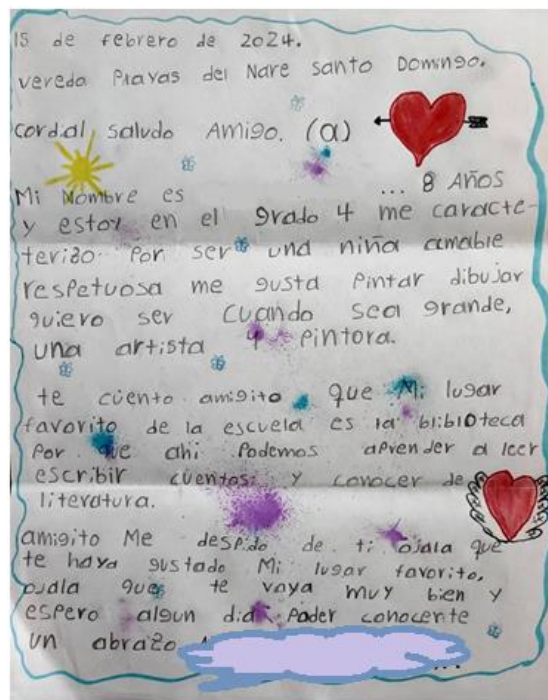 15 de febrero de 2024.
vereda Playas del Nare santo Domingo.
cordal saludo Amigo. (a)
Mi Nombre es ... 8 Años
y estoy en el grado 4 me caracte-
terizo por ser una niña amable
respetuosa me gusta Pintar dibujar
quiero ser cuando sea grande,
una artista y Pintora.
te cuento amigito que Mi lugar
favorito de la escuela es la biblioteca
Por que ahi Podemos aprender a leer
escribir cuentos y conocer de
literatura.
amigito Me despido de ti ojala que
te haya gustado Mi lugar favorito,
ojala que te vaya muy bien y
espero algun dia Poder conocerte
un abrazo